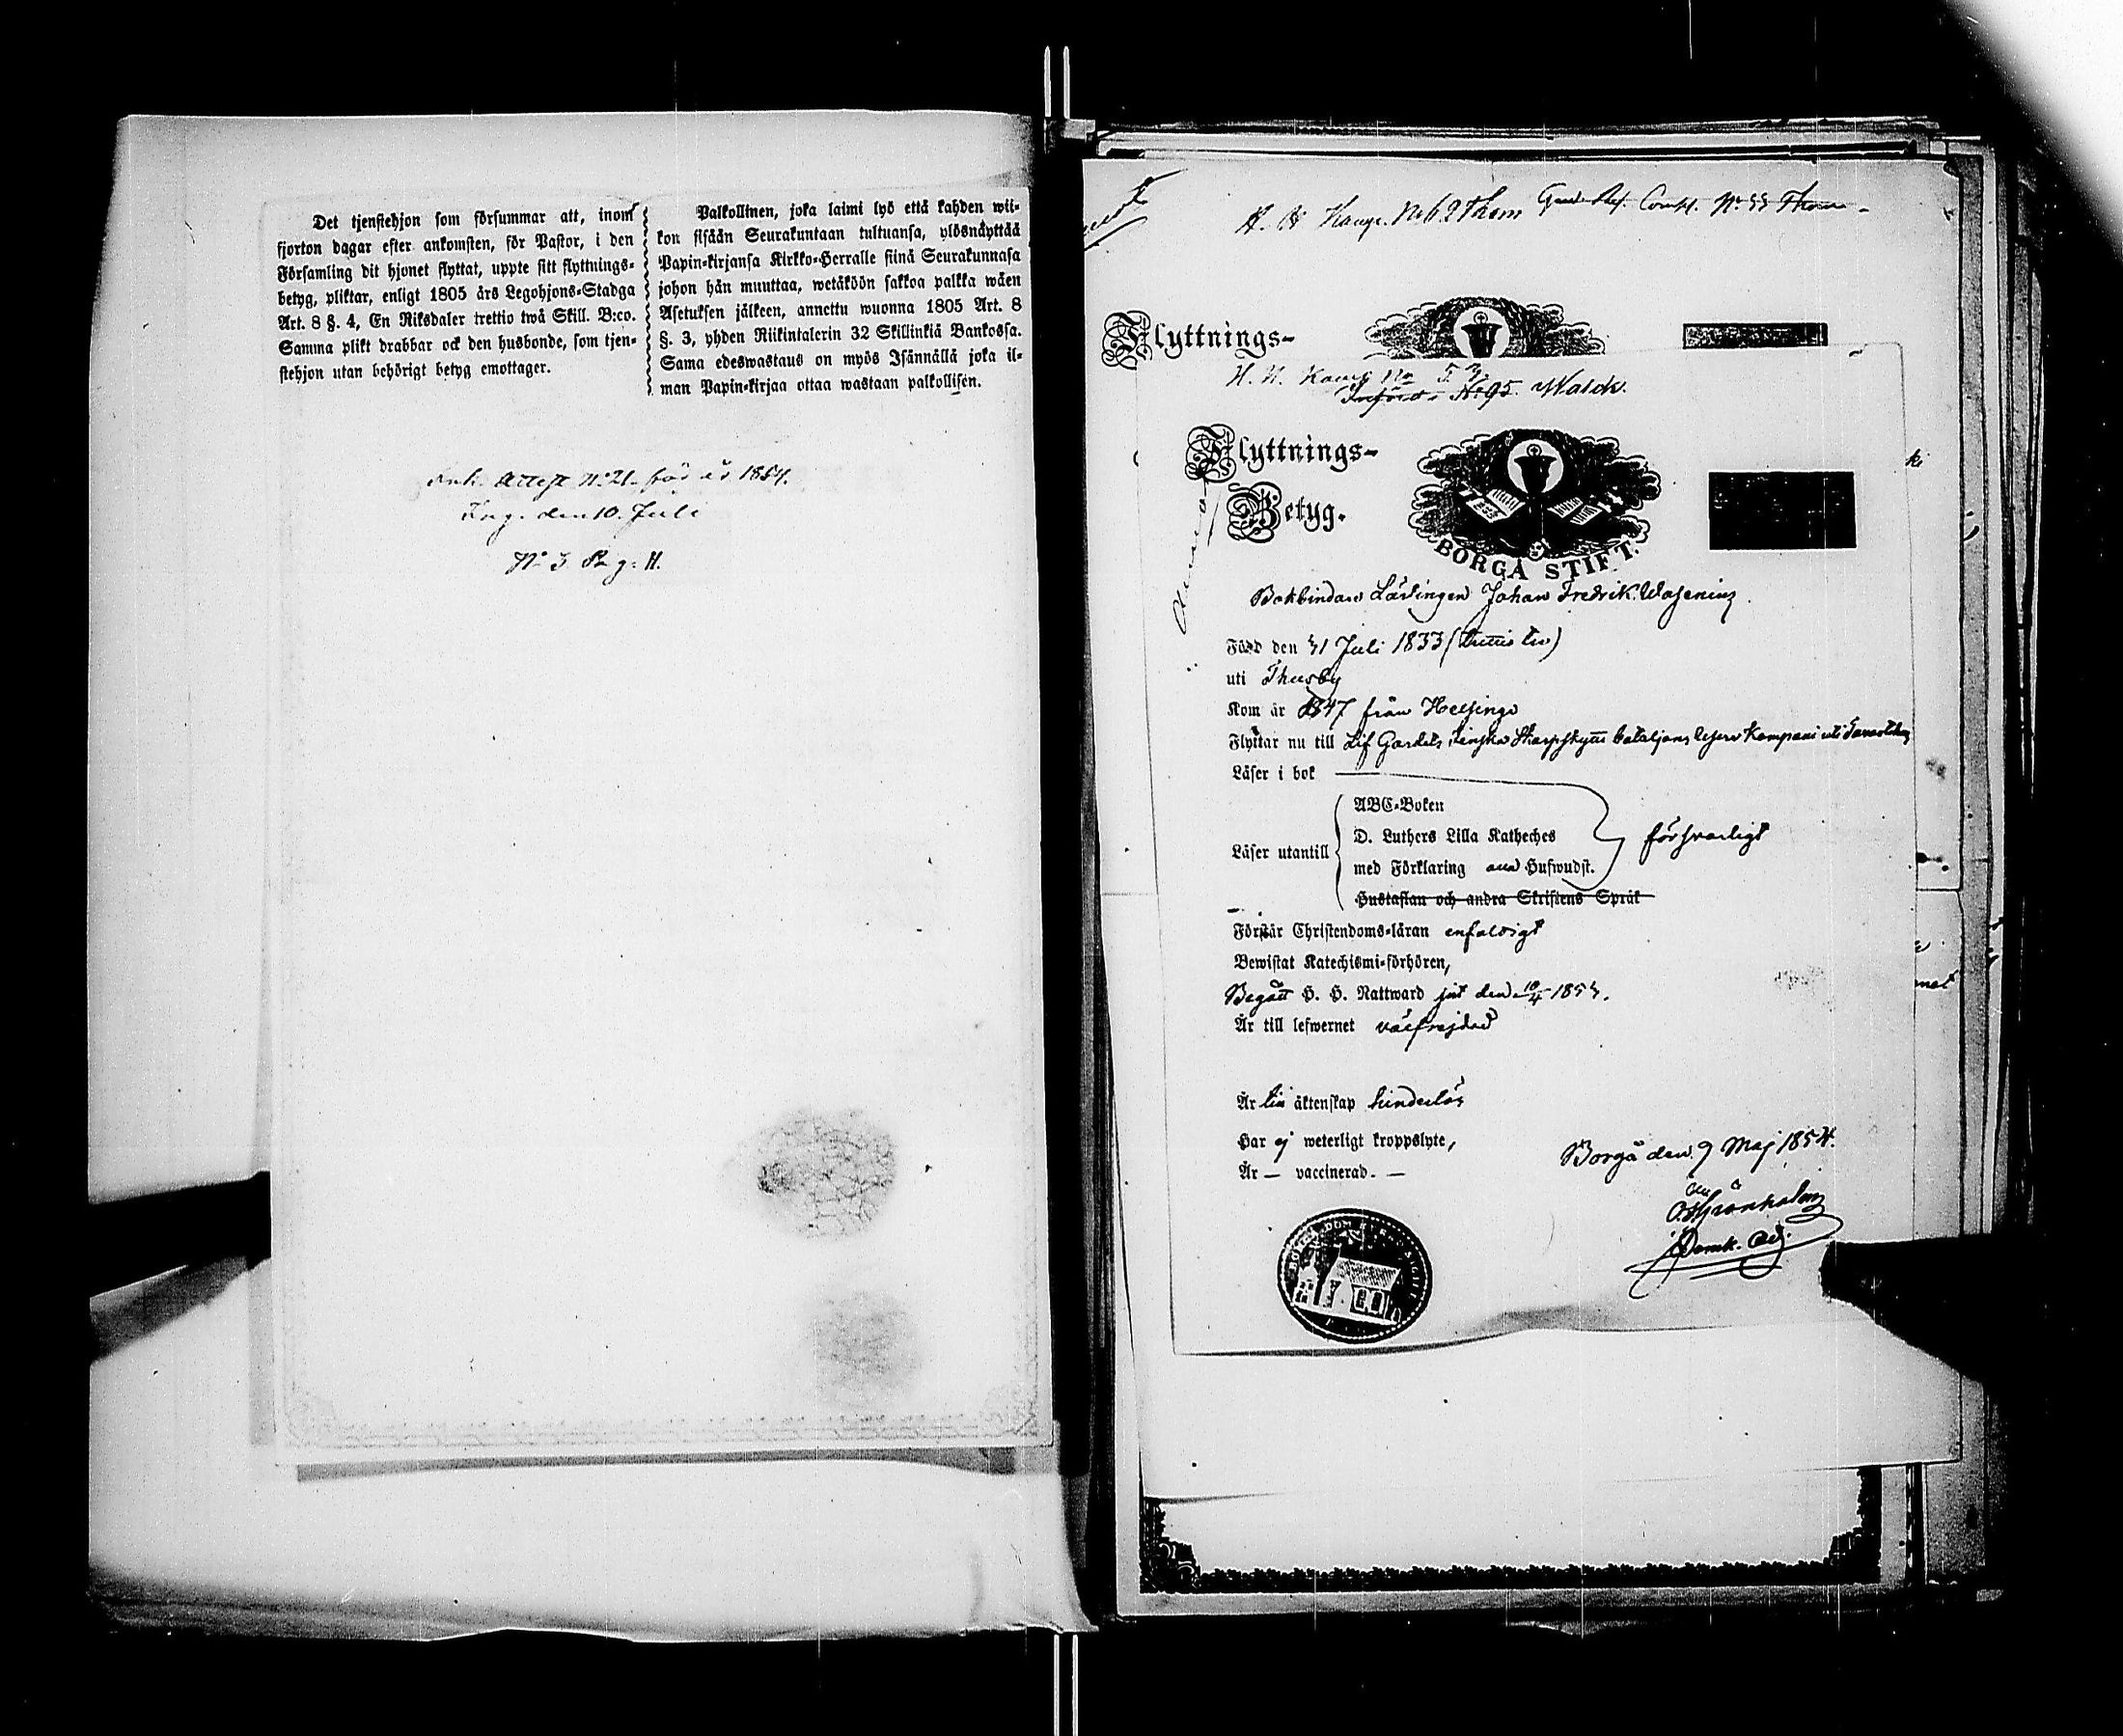 Det tjenstehjon som försummar att, inom
fjorton dagar efter ankomsten, för Pastor, i den
Församling dit hjonet flyttat, uppte sitt flyttnings-
betyg, pliktar, enligt 1805 års Legohjons-Stadga
Art. 8 §. 4, En Riksdaler trettio twå Skill. B:co.
Samma plikt drabbar ock den husbonde, som tjen-
stehjon utan behörigt betyg emottager.
Palkollinen, joka laimi lyö että kahden wii-
kon sisään Seurakuntaan tultuansa, ylösnäyttää
Papin-kirjansa Kirkko-Herralle siinä Seurakunnasa
johon hän muuttaa, wetäköön sakkoa palkka wäen
Asetuksen jälkeen, annettu wuonna 1805 Art. 8
§. 3, yhden Riikintalerin 32 Skillinkiä Bankossa.
Sama edeswastaus on myös Isännällä joka il-
man Papin-kirjaa ottaa wastaan palkollisen.
Attest N:o 21 för år 1854.
Ing. den 10. Juli
N:o 3 Pag: H.
N:o 62 Thom
Flyttnings-
No 53
N:o 95 Walck.
Flyttnings-
Betyg.
BORGÅ STIFT.
Bokbindare Lärlingen Johan Fredrik Wasenius
Född den 31 Juli 1833 (trettio tre)
uti Thusby
Kom år 1847 från Helsinge
Flyttar nu till Lif Gardets Finska Skarpskytte bataljons reserv Kompani uti Tavastehus
Läser i bok
Läser utantill
ABC-Boken
D. Luthers Lilla Katheches
med Förklaring alla Hufwudst.
Hustaflan och andra Skriftens Språk
försvarligt
Förstår Christendoms-läran enfaldigt
Bewistat Katechismi-förhören,
Begått H. H. Nattward sist den 10/4 185
Är till lefwernet välfrejdad
Är till äktenskap hinderlös
Har ej weterligt kroppslyte,
Är — vaccinerad. —
Borgå den 9 Maj 1854.
Grönholm
Domk. Adj.